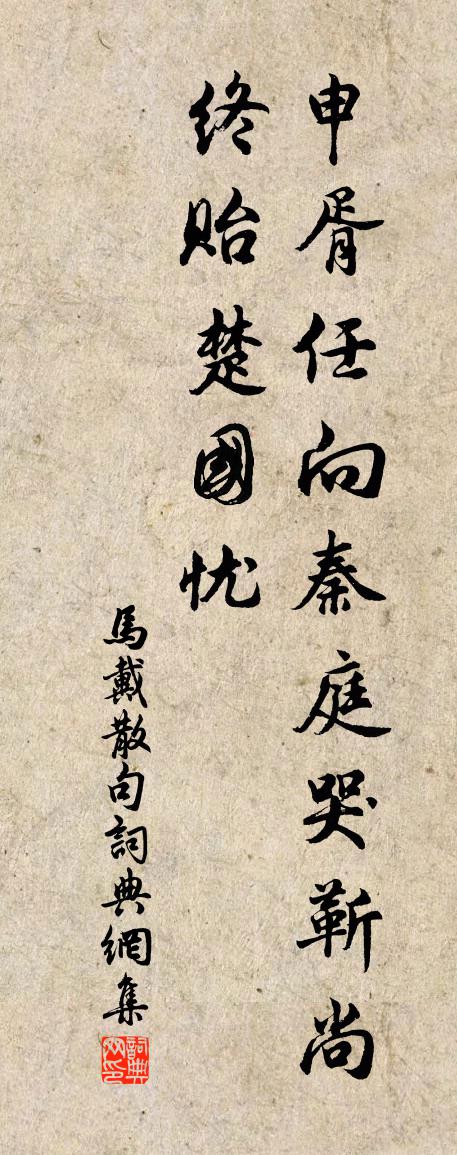 申胥任向秦庭哭靳尚
終貽楚國忧
馬戴散句詞典網集
詞典網印